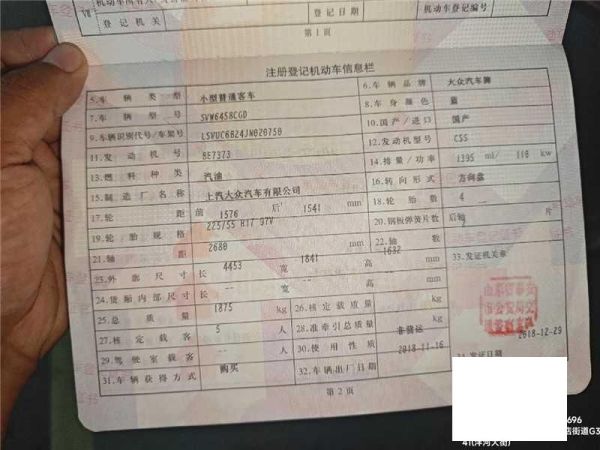 登记机关 登记日期 机动车登记编号
第1页
注册登记机动车信息栏
5.车辆类型 小型普通客车 6.车辆品牌 大众汽车牌
7.车辆型号 SVW6458CGD 8.车身颜色 蓝
9.车辆识别代号/车架号 LSVUC6B24JN020750 10.国产/进口 国产
11.发动机号 BE7373 12.发动机型号 CSS
13.燃料种类 汽油 14.排量/功率 1395 ml/ 110 kw
15.制造厂名称 上汽大众汽车有限公司 16.转向形式 方向盘
17.轮距 前 1576 后 1541 mm 18.轮胎数 4
19.轮胎规格 225/55 R17 97V 20.钢板弹簧片数 后轴 片
21.轴距 2680 mm 22.轴数 2
23.外廓尺寸 长 4453 宽 1841 高 1632 mm 33.发证机关章
24.货厢内部尺寸 长 -- 宽 -- 高 -- mm
25.总质量 1875 kg 26.核定载质量 -- kg
27.核定载客 5 人 28.准牵引总质量 -- kg
29.驾驶室载客 -- 人 30.使用性质 非营运 2018-12-29
31.车辆获得方式 购买 32.车辆出厂日期 2018-11-16 34.发证日期
第2页
696
店街道G3